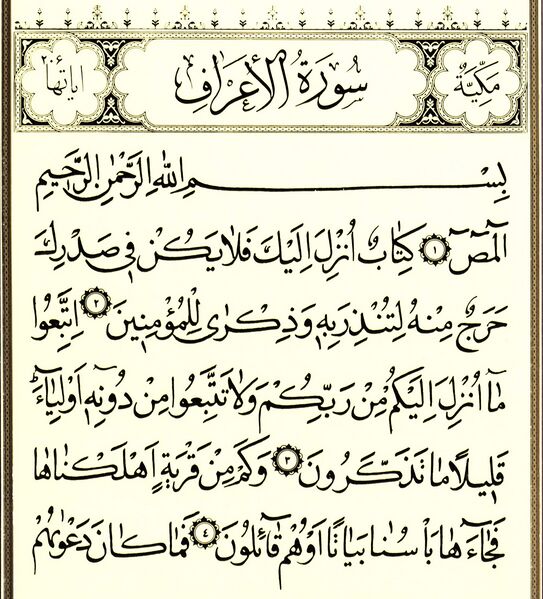 مَكِّيَّةٌ سُورَةُ الْأَعْرَافِ اٰيَاتُهَا ٢٠٦
بِسْمِ اللّٰهِ الرَّحْمٰنِ الرَّحِيمِ
الٓمٓصٓ ﴿١﴾ كِتَابٌ اُنْزِلَ اِلَيْكَ فَلَا يَكُنْ فِى صَدْرِكَ
حَرَجٌ مِنْهُ لِتُنْذِرَ بِهِ وَذِكْرٰى لِلْمُؤْمِنِينَ ﴿٢﴾ اِتَّبِعُوا
مَٓا اُنْزِلَ اِلَيْكُمْ مِنْ رَبِّكُمْ وَلَا تَتَّبِعُوا مِنْ دُونِهِٓ اَوْلِيَٓاءَۜ
قَلِيلًا مَا تَذَكَّرُونَ ﴿٣﴾ وَكَمْ مِنْ قَرْيَةٍ اَهْلَكْنَاهَا
فَجَٓاءَهَا بَأْسُنَا بَيَاتًا اَوْ هُمْ قَٓائِلُونَ ﴿٤﴾ فَمَا كَانَ دَعْوٰيهُمْ